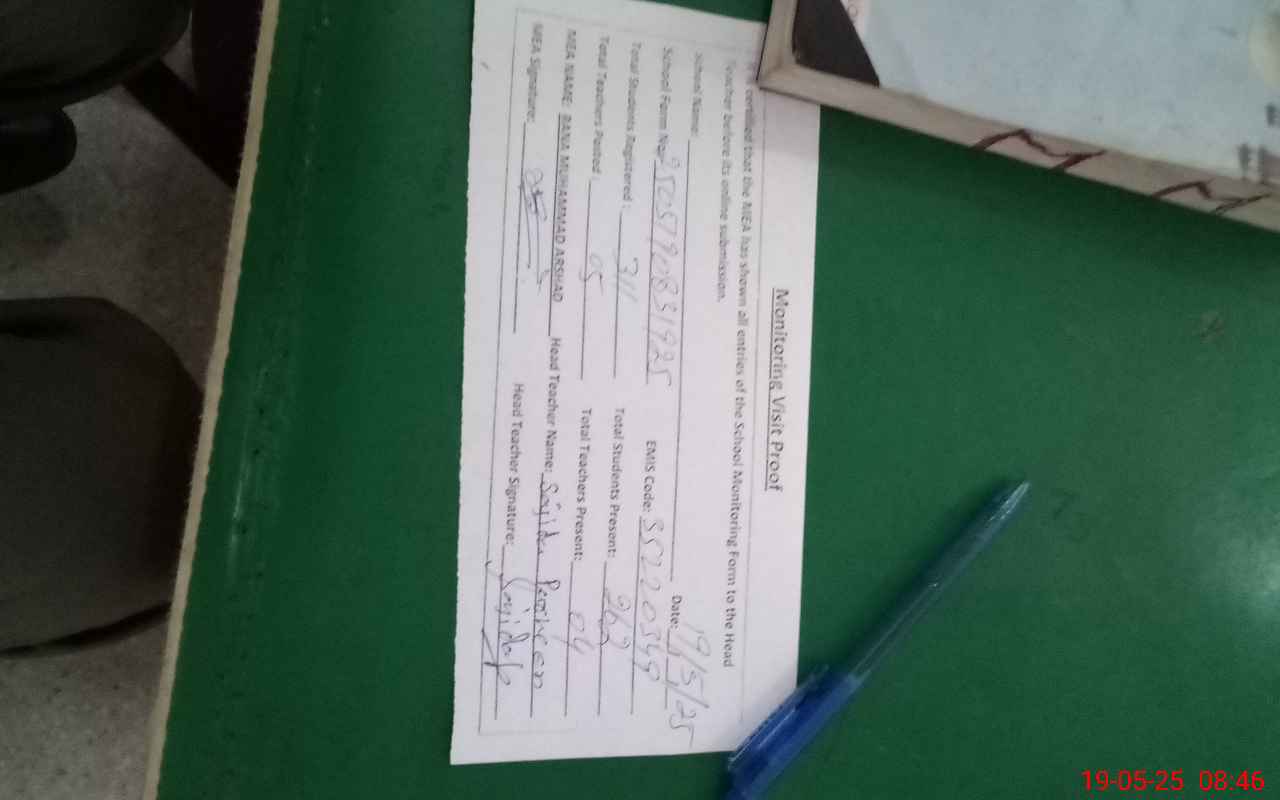 Monitoring Visit Proof
certified that the MEA has shown all entries of the School Monitoring Form to the Head
Teacher before its online submission.
School Name: Date: 19/5/25
School Form No: EMIS Code: 35220349
Total Students Registered: 311 Total Students Present: 262
Total Teachers Posted: 05 Total Teachers Present: 04
MEA NAME: RANA MUHAMMAD ARSHAD Head Teacher Name: Sajida Parveen
MEA Signature: Head Teacher Signature: Sajida
19-05-25 08:46